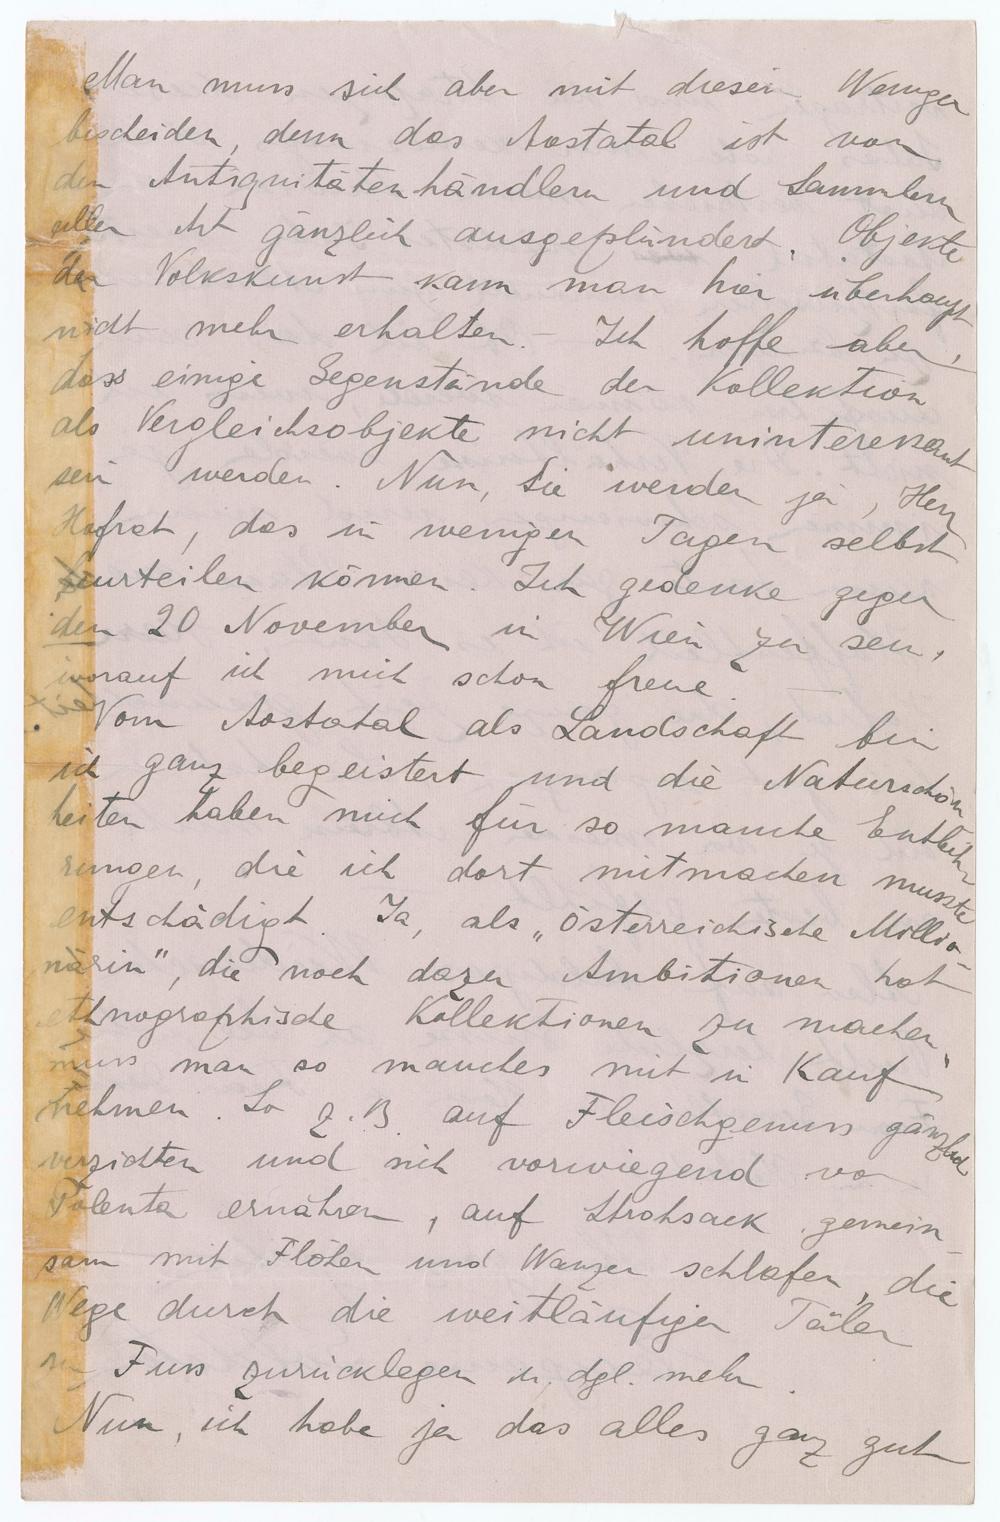 Man muss sich aber mit diesem Wenigen
bescheiden, denn das Aostatal ist von
den Antiquitätenhändlern und Sammlern
aller Art gänzlich ausgeplündert. Objekte
der Volkskunst kann man hier überhaupt
nicht mehr erhalten. – Ich hoffe aber,
dass einige Gegenstände der Kollektion
als Vergleichsobjekte nicht uninteressant
sein werden. Nun, Sie werden ja, Herr
Hofrat, das in wenigen Tagen selbst
beurteilen können. Ich gedenke gegen
den 20 November in Wien zu sein,
worauf ich mich schon freue. –
Vom Aostatal als Landschaft bin
ich ganz begeistert und die Naturschön
heiten haben mich für so manche Entbeh
rungen, die ich dort mitmachen musste
entschädigt. Ja, als „österreichische Millio-
närin", die noch dazu Ambitionen hat
ethnographische Kollektionen zu machen,
muss man so manches mit in Kauf
nehmen. So z.B. auf Fleischgenuss gänzlich
verzichten und sich vorwiegend von
Polenta ernähren, auf Strohsack gemein-
sam mit Flöhen und Wanzen schlafen, die
Wege durch die weitläufigen Täler
zu Fuss zurücklegen u. dgl. mehr.
Nun, ich habe ja das alles ganz gut